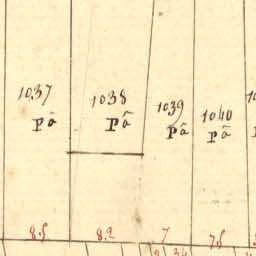 1037
Pâ
1038
Pâ
1039
Pâ
1040
Pâ
8.5
8.2
7
7.5
34